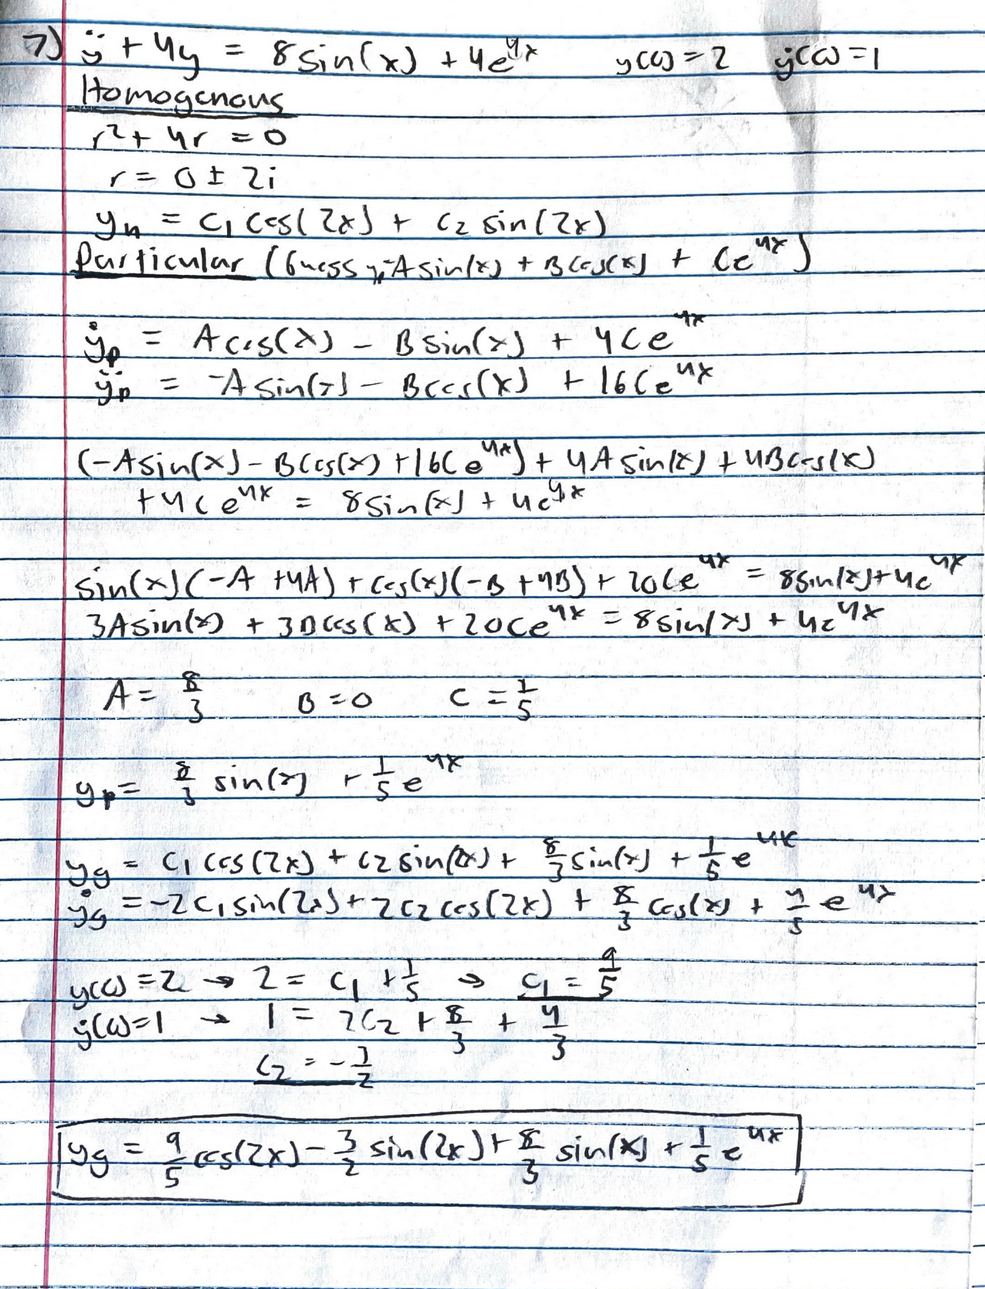 7) ÿ + 4y = 8sin(x) + 4e^4x y(0) = 2 ẏ(0) = 1
Homogenous
r² + 4r = 0
r = 0 ± 2i
yₕ = C₁ cos(2x) + C₂ sin(2x)
Particular (Guess yₚ=Asin(x) + Bcos(x) + Ce^4x)
ẏₚ = Acos(x) - Bsin(x) + 4Ce^4x
ÿₚ = -Asin(x) - Bcos(x) + 16Ce^4x
(-Asin(x) - Bcos(x) + 16Ce^4x) + 4Asin(x) + 4Bcos(x)
+ 4Ce^4x = 8sin(x) + 4e^4x
sin(x)(-A + 4A) + cos(x)(-B + 4B) + 20Ce^4x = 8sin(x) + 4e^4x
3Asin(x) + 3Bcos(x) + 20Ce^4x = 8sin(x) + 4e^4x
A = 8/3 B = 0 C = 1/5
yₚ = 8/3 sin(x) + 1/5 e^4x
y_g = C₁ cos(2x) + C₂ sin(2x) + 8/3 sin(x) + 1/5 e^4x
ẏ_g = -2C₁ sin(2x) + 2C₂ cos(2x) + 8/3 cos(x) + 4/5 e^4x
y(0) = 2 → 2 = C₁ + 1/5 → C₁ = 9/5
ẏ(0) = 1 → 1 = 2C₂ + 8/3 + 4/3
C₂ = -3/2
y_g = 9/5 cos(2x) - 3/2 sin(2x) + 8/3 sin(x) + 1/5 e^4x